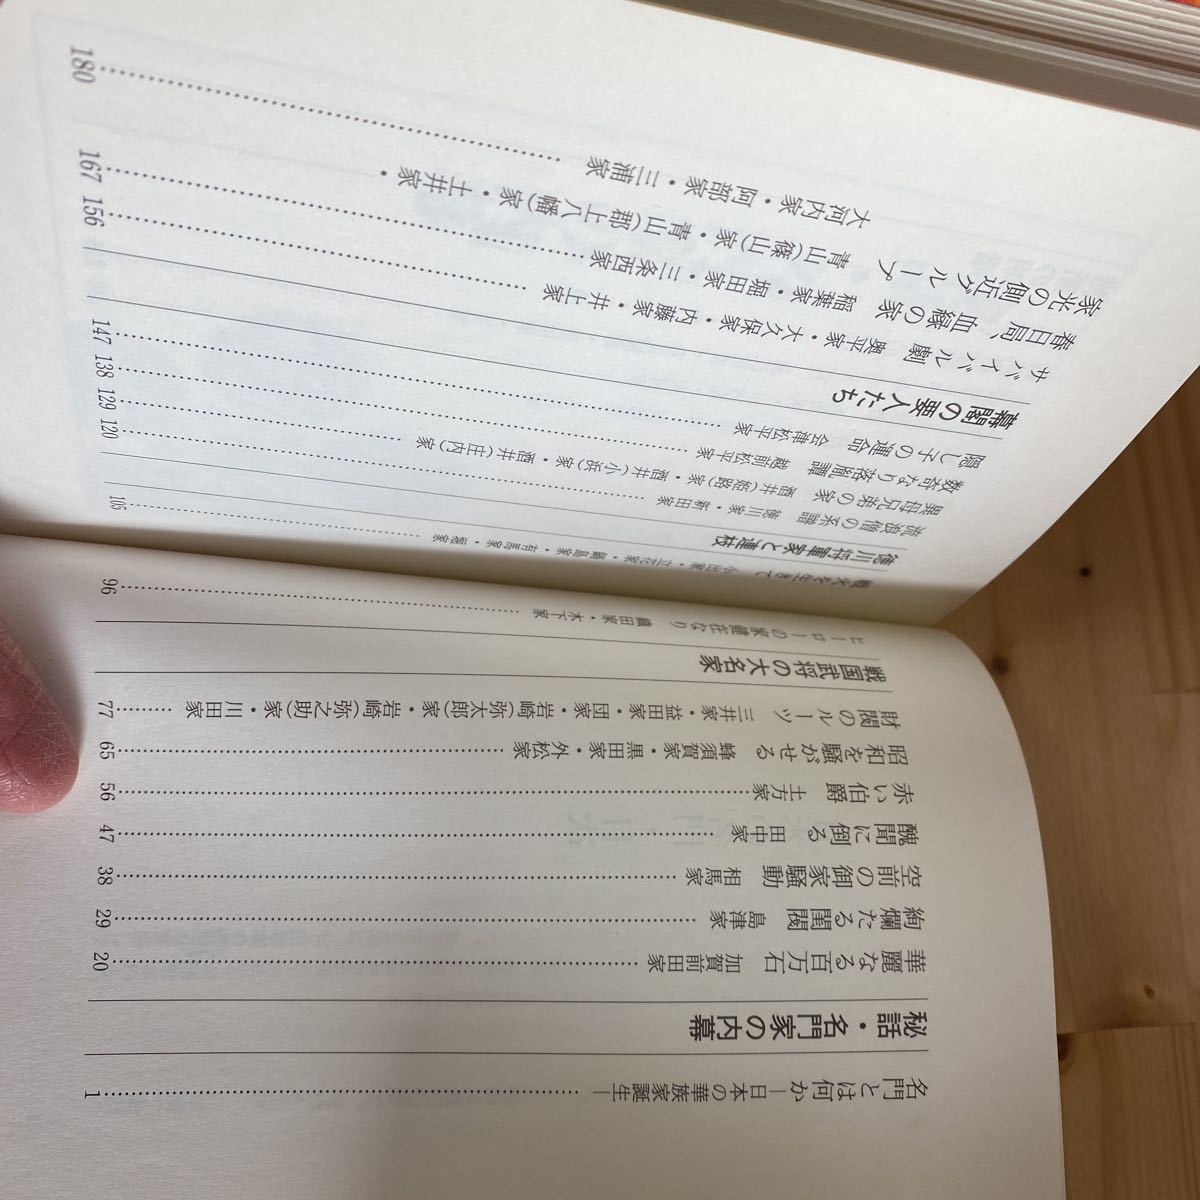 名門とは何か―日本の華族家誕生―……1
秘話・名門家の内幕
華麗なる百万石　加賀前田家……20
絢爛たる閨閥　島津家……29
空前の御家騒動　相馬家……38
醜聞に倒る　田中家……47
赤い伯爵　土方家……56
昭和を騒がせる　蜂須賀家・黒田家・外松家……65
財閥のルーツ　三井家・益田家・団家・岩崎(弥太郎)家・岩崎(弥之助)家・川田家……77
戦国武将の大名家
ヒーローの家健在なり　織田家・木下家……96
戦火を生きて　小出家・立花家・鍋島家・有馬家・堀家……105
徳川将軍家と連枝
流浪僧の系譜　徳川家・新田家……120
異母兄弟の家　酒井(姫路)家・酒井(小浜)家・酒井(庄内)家……129
数奇なり落胤譚　越前松平家……138
隠し子の運命　会津松平家……147
幕閣の要人たち
サバイバル劇　奥平家・大久保家・内藤家・井上家……156
春日局、血縁の家　稲葉家・堀田家・三条西家……167
家光の側近グループ　青山(篠山)家・青山(郡上八幡)家・土井家・
大河内家・阿部家・三浦家……180